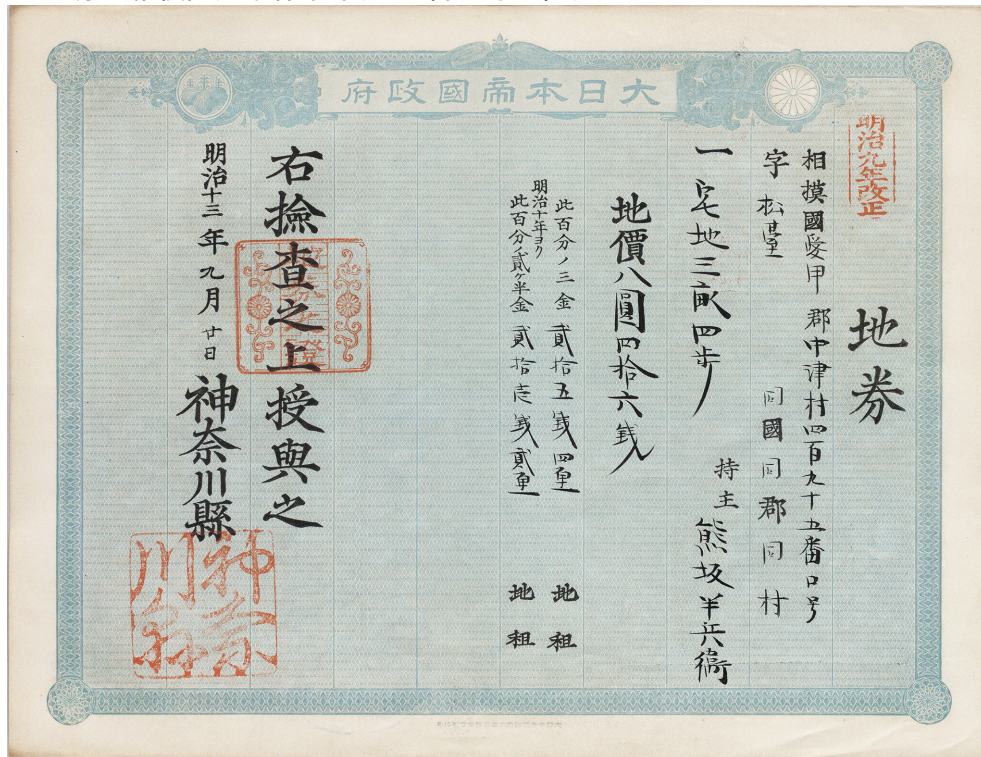 大日本帝國政府
明治九年改正
地券
相摸國愛甲郡中津村四百九十五番口号
字松臺
同國同郡同村
一宅地三畝四歩
持主 熊坂半兵衞
地價八圓四拾六銭
此百分ノ三金貳拾五銭四厘 地租
明治十年ヨリ
此百分ノ貳ケ半金貳拾壱銭貳厘 地租
右撿查之上授與之
明治十三年九月廿日
神奈川縣